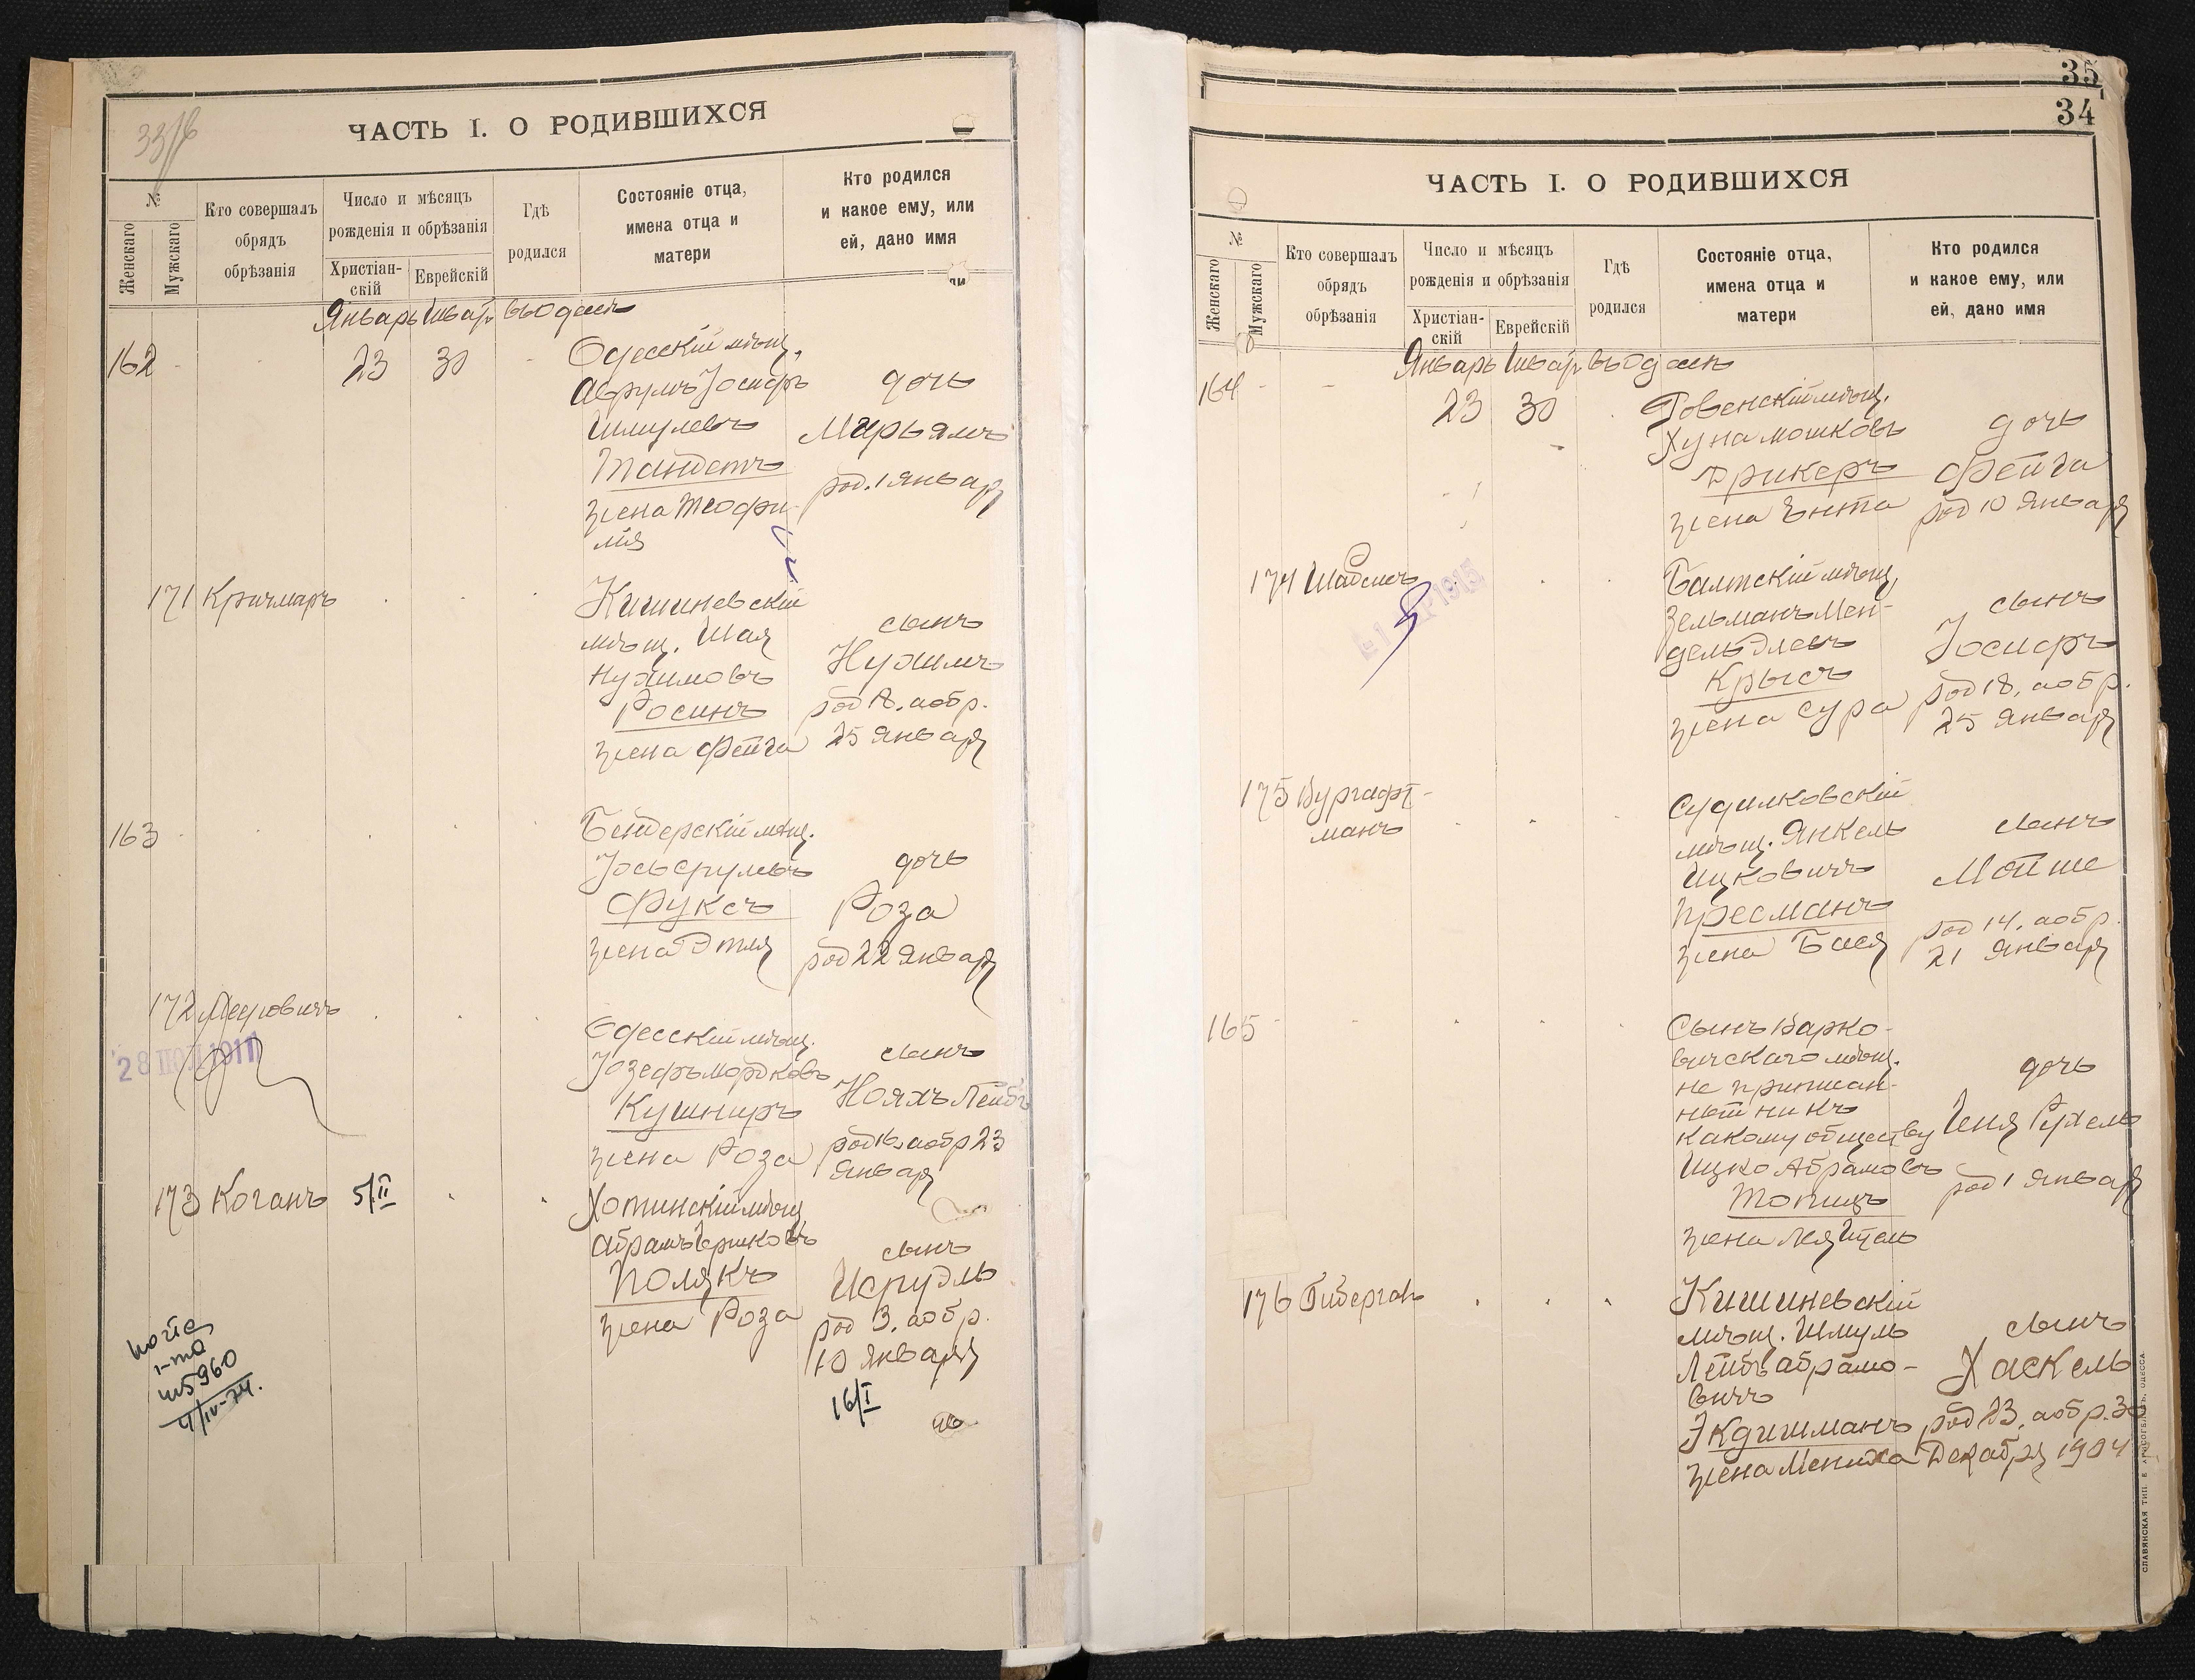 33/б
ЧАСТЬ I. О РОДИВШИХСЯ
№
Женскаго
Мужскаго
Кто совершалъ
обрядъ
обрѣзанія
Число и мѣсяцъ
рожденія и обрѣзанія
Христіан-
скій
Еврейскій
Гдѣ
родился
Состояніе отца,
имена отца и
матери
Кто родился
и какое ему, или
ей, дано имя
Январь Шватъ въ Одессѣ
162
23 30
Одесскій мѣщ.
Аврумъ Іосифъ
Шмулевъ
Тандетъ
жена Теофи-
лія
дочь
Марьямъ
род. 1 Января
171 Кричмаръ
Кишиневскій
мѣщ. Шая
Нухимовъ
Росинъ
жена Фейга
сынъ
Нухимъ
род 18. а обр.
25 Января
163
Бендерскій мѣщ.
Іось Срулевъ
Фуксъ
жена Этля
дочь
Роза
род 22 Января
172 Мееровичъ
28 ІЮЛ 1911
Одесскій мѣщ.
Іозефъ Мордковъ
Кушниръ
жена Роза
сынъ
Нояхъ Лейбъ
род 16. а обр 23
Января
173 Коганъ 5/II
Хотинскій мѣщ
Абрамъ Берковъ
Полякъ
жена Роза
сынъ
Исруэль
род 3. а обр.
10 Января
16/I
960
4/IV-74.
35
34
ЧАСТЬ I. О РОДИВШИХСЯ
№
Женскаго
Мужскаго
Кто совершалъ
обрядъ
обрѣзанія
Число и мѣсяцъ
рожденія и обрѣзанія
Христіан-
скій
Еврейскій
Гдѣ
родился
Состояніе отца,
имена отца и
матери
Кто родился
и какое ему, или
ей, дано имя
Январь Шватъ въ Одессѣ
164
23 30
Ровенскій мѣщ.
Хуна Мошковъ
Дрикеръ
жена Ента
дочь
Фейга
род 10 Января
174 Шабсисъ
1915
Балтскій мѣщ.
Зельманъ Мен-
дель Элевъ
Крысъ
жена Сура
сынъ
Іосифъ
род 18. а обр.
25 Января
175 Бургафт-
манъ
Судилковскій
мѣщ. Янкель
Ицковичъ
Пресманъ
жена Бася
сынъ
Мойше
род 14. а обр.
21 Января
165
Сынъ Варко-
вичскаго мѣщ.
не приписан-
ный ни къ
какому обществу
Ицко Абрамовъ
Топицъ
жена Лея Итель
дочь
Геня Рухель
род 1 Января
176 Гиберганъ
Кишиневскій
мѣщ. Шмуль
Лейбъ Абрамо-
вичъ
Экдишманъ
жена Мениха
сынъ
Хаскель
род 23. а обр. 30
Декабря 1904
СЛАВЯНСКАЯ ТИП. Е. ХРИСОГЕЛОСЪ, ОДЕССА.